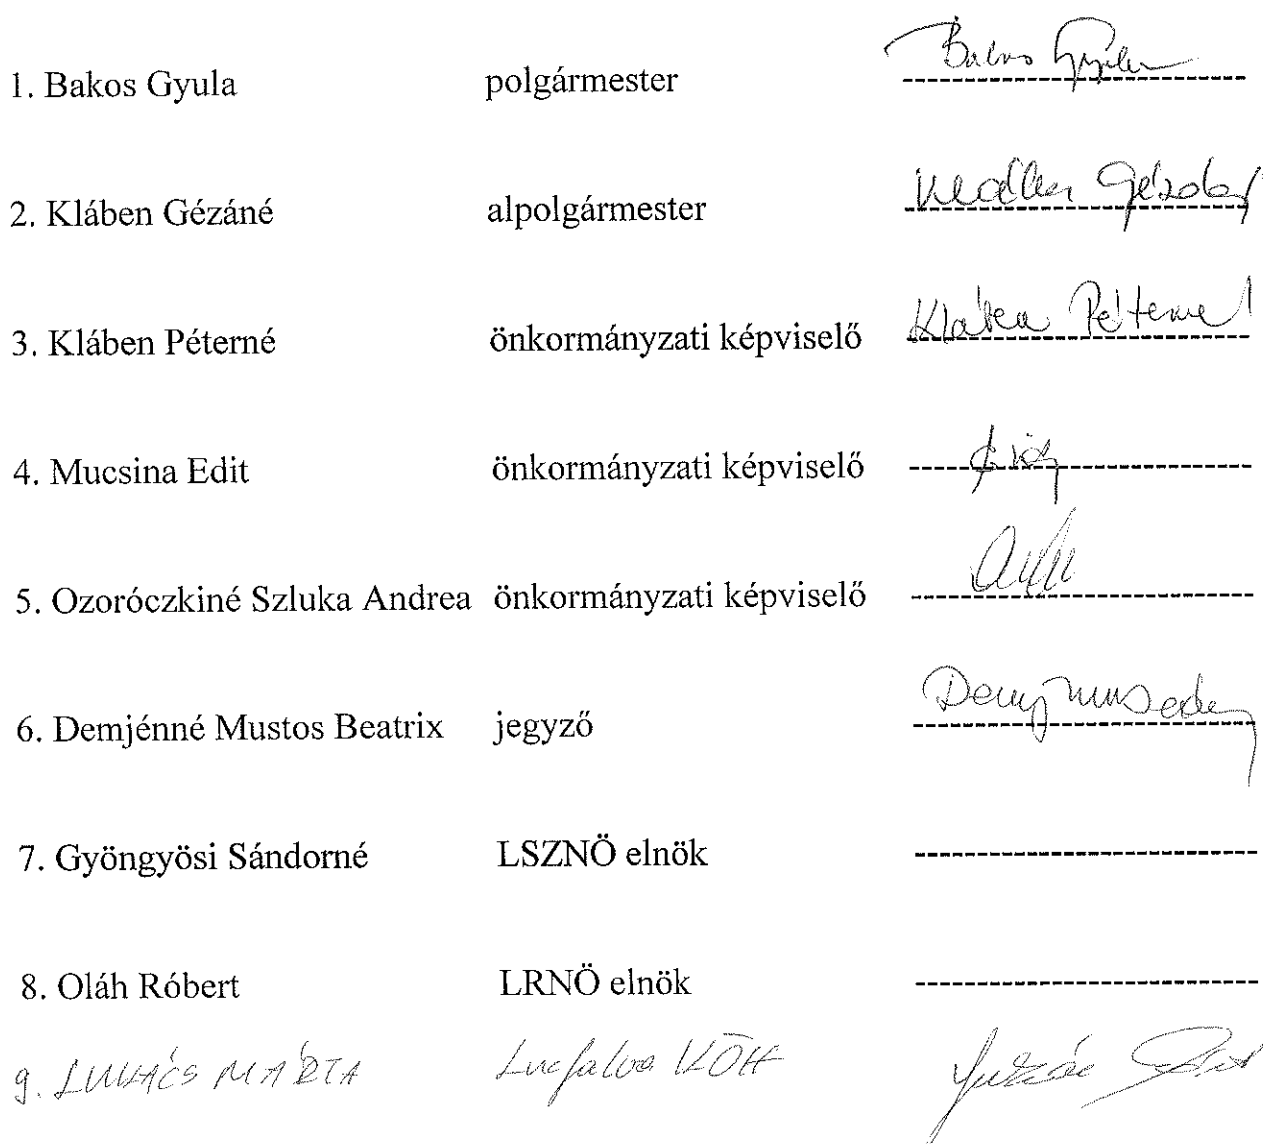 1. Bakos Gyula polgármester Bakos Gyula
2. Kláben Gézáné alpolgármester Kláben
3. Kláben Péterné önkormányzati képviselő Kláben Péterné
4. Mucsina Edit önkormányzati képviselő
5. Ozoróczkiné Szluka Andrea önkormányzati képviselő
6. Demjénné Mustos Beatrix jegyző
7. Gyöngyösi Sándorné LSZNÖ elnök
8. Oláh Róbert LRNÖ elnök
9. LUKÁCS MÁRTA Lucfalva KÖH